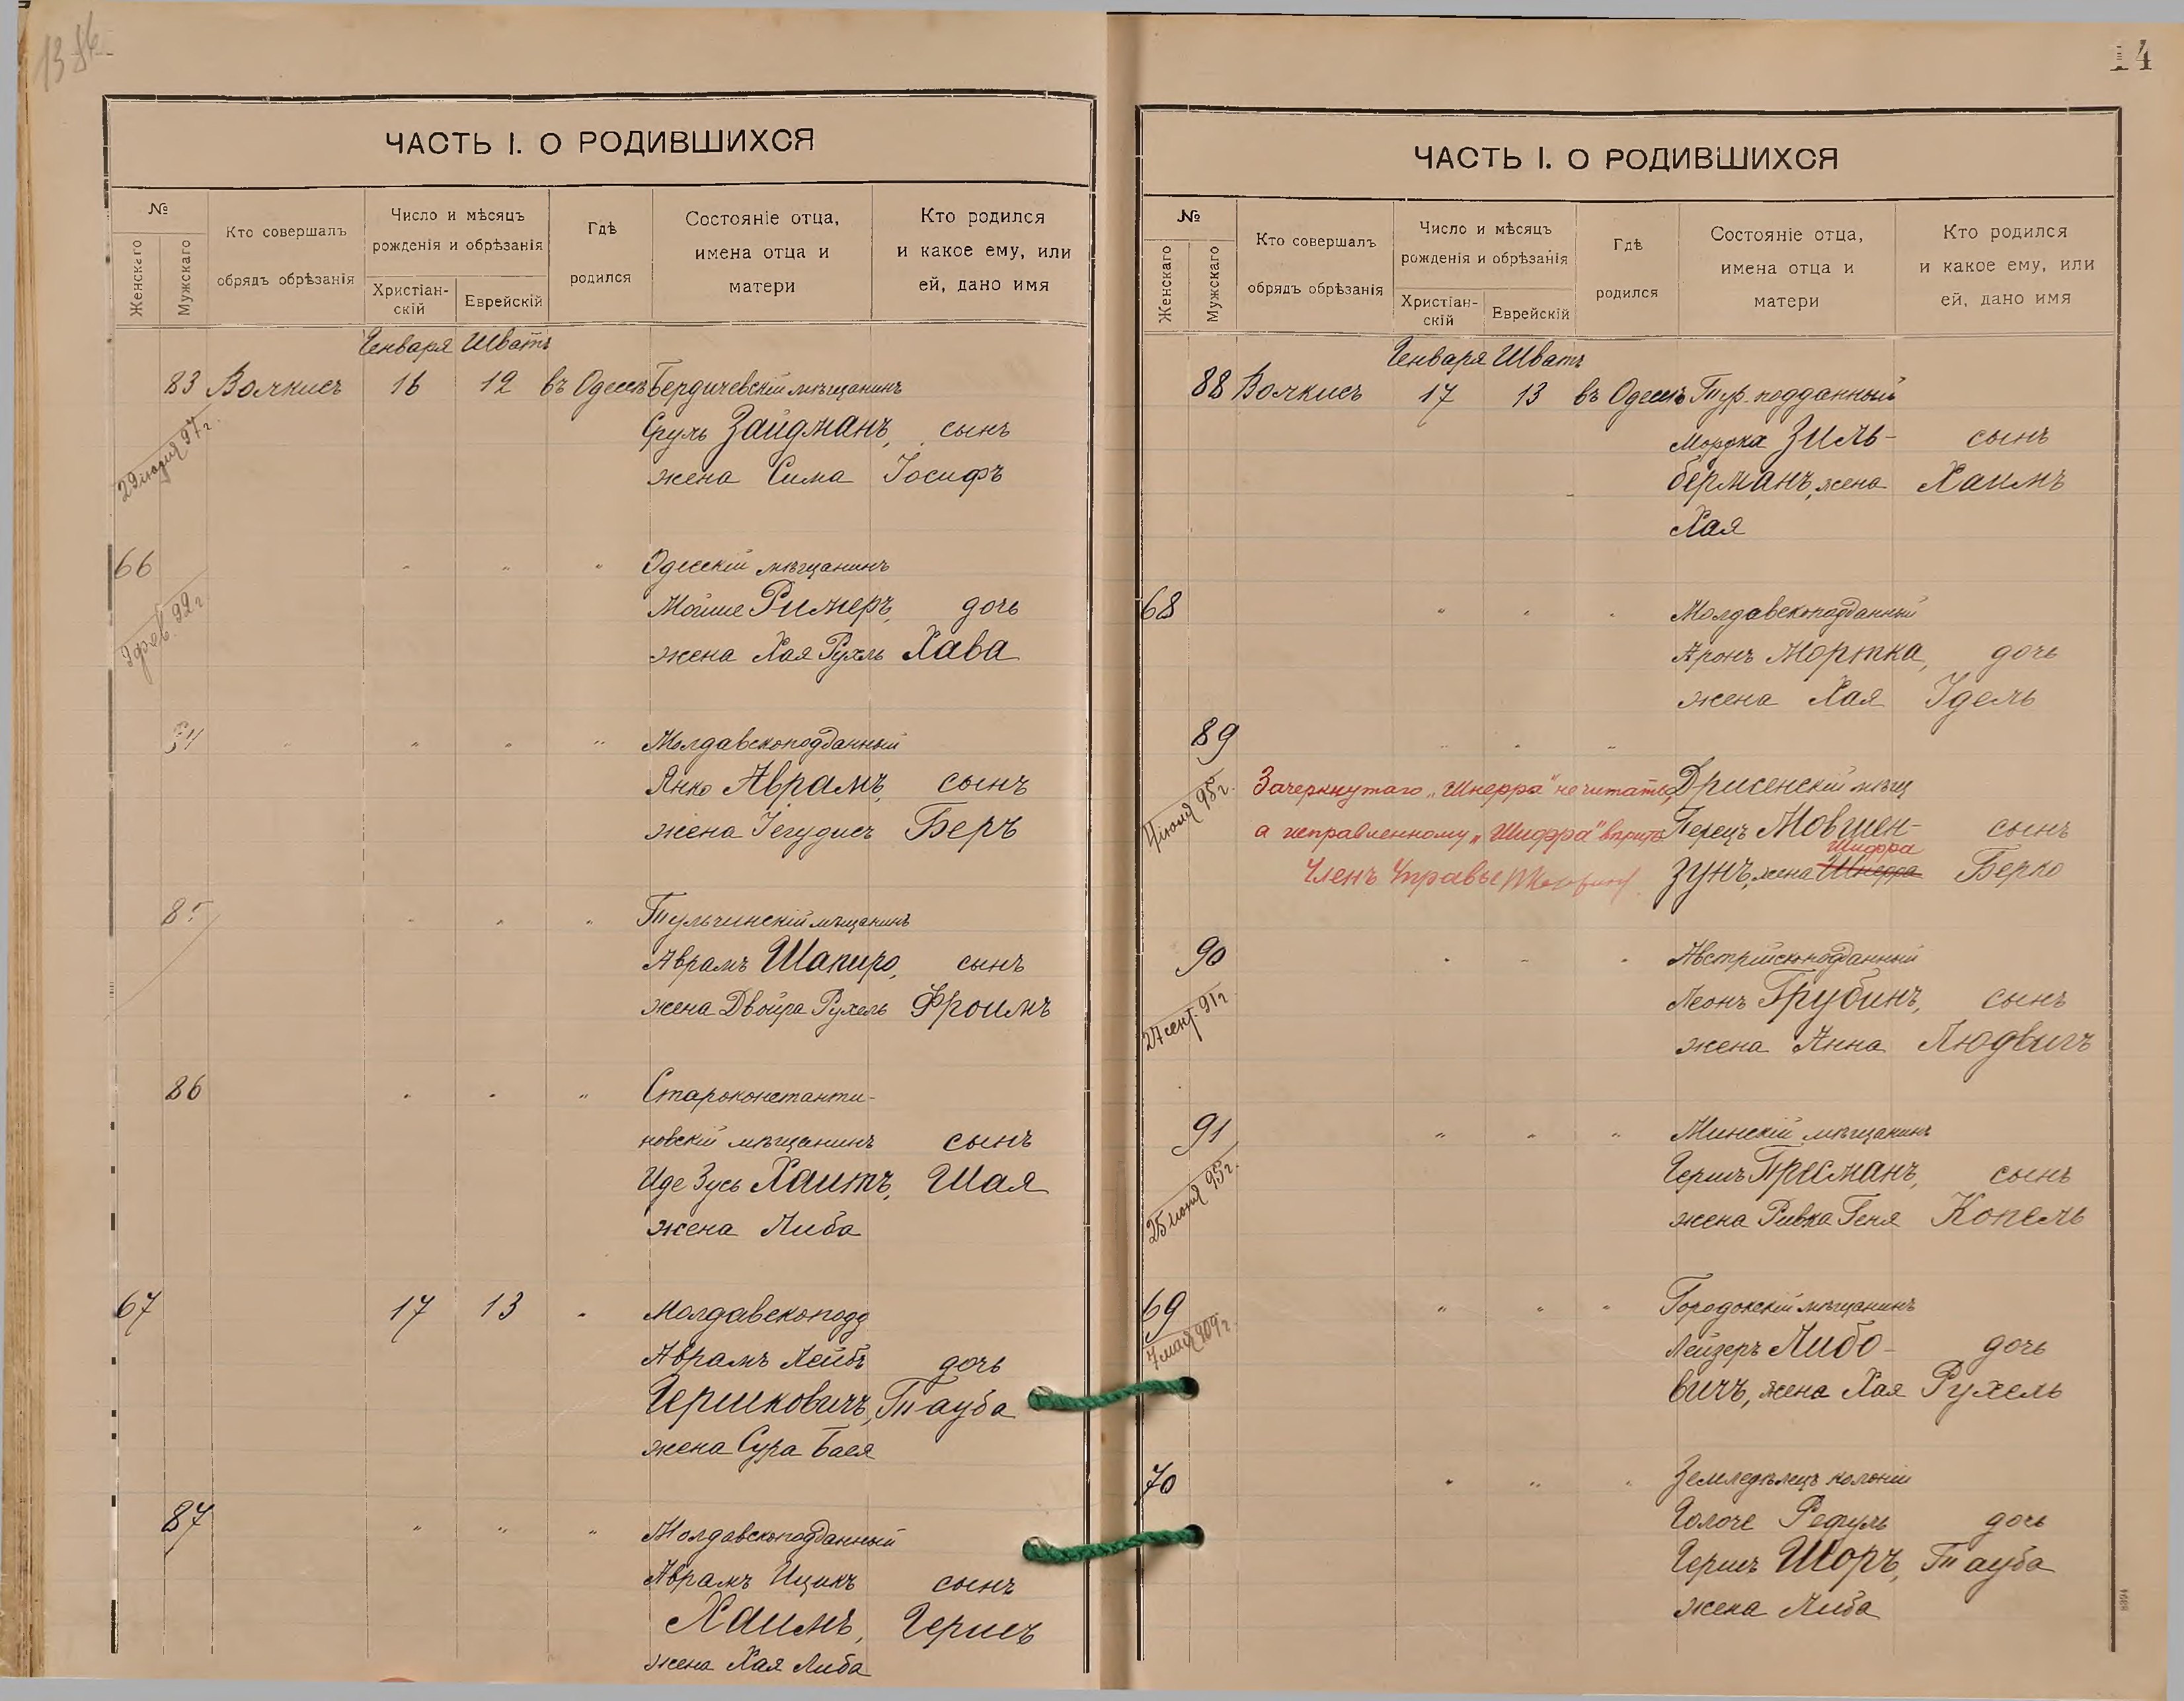 ЧАСТЬ I. О РОДИВШИХСЯ
№
Женскаго
Мужскаго
Кто совершалъ
обрядъ обрѣзанія
Число и мѣсяцъ
рожденія и обрѣзанія
Христіан-
скій
Еврейскій
Гдѣ
родился
Состояніе отца,
имена отца и
матери
Кто родился
и какое ему, или
ей, дано имя
Генваря Шватъ
83 Волкисъ 16 12 въ Одессѣ Бердичевскій мѣщанинъ
Сруль Зайдманъ, сынъ
жена Сима Іосифъ
97 г.
66 " " " Одесскій мѣщанинъ
Мойше Римеръ, дочь
жена Хая Рухль Хава
9 фев. 92 г
84 " " " " Молдавскоподданный
Янко Аврамъ, сынъ
жена Іегудисъ Беръ
85 " " " Тульчинскій мѣщанинъ
Аврамъ Шапиро, сынъ
жена Двойра Рухель Фроимъ
86 " " " Староконстанти-
новскій мѣщанинъ сынъ
Иде Зусь Хаитъ, Шая
жена Либа
67 17 13 " Молдавскоподд
Аврамъ Лейбъ дочь
Гершковичъ, Тауба
жена Сура Бася
87 " " " Молдавскоподданный
Аврамъ Ицикъ сынъ
Хаимъ, Гершъ
жена Хая Либа
14
ЧАСТЬ I. О РОДИВШИХСЯ
№
Женскаго
Мужскаго
Кто совершалъ
обрядъ обрѣзанія
Число и мѣсяцъ
рожденія и обрѣзанія
Христіан-
скій
Еврейскій
Гдѣ
родился
Состояніе отца,
имена отца и
матери
Кто родился
и какое ему, или
ей, дано имя
Генваря Шватъ
88 Волкисъ 17 13 въ Одессѣ Тур. подданный
Мордка Зиль- сынъ
берманъ, жена Хаимъ
Хая
68 " " " Молдавскоподданный
Аронъ Мортка, дочь
жена Хая Идель
89 " " " Дрисенскій мѣщ
Зачеркнутаго „Шнерра" не читать,
Перецъ Мовшен- сынъ
а исправленному „Шифра" вѣрить
Шифра
зунъ, жена Шнерра Берко
Членъ Управы
95 г.
90 " " " Австрійскоподданный
Леонъ Грубинъ, сынъ
жена Анна Людвигъ
27 сент. 91 г
91 " " " Минскій мѣщанинъ
Гершъ Пресманъ, сынъ
жена Ривка Геня Копель
25 іюня 95 г.
69 " " " Городокскій мѣщанинъ
Лейзеръ Либо- дочь
вичъ, жена Хая Рухель
7 мая 909 г.
70 " " " Земледѣлецъ колоніи
дочь
Гершъ Шоръ, Тауба
жена Либа